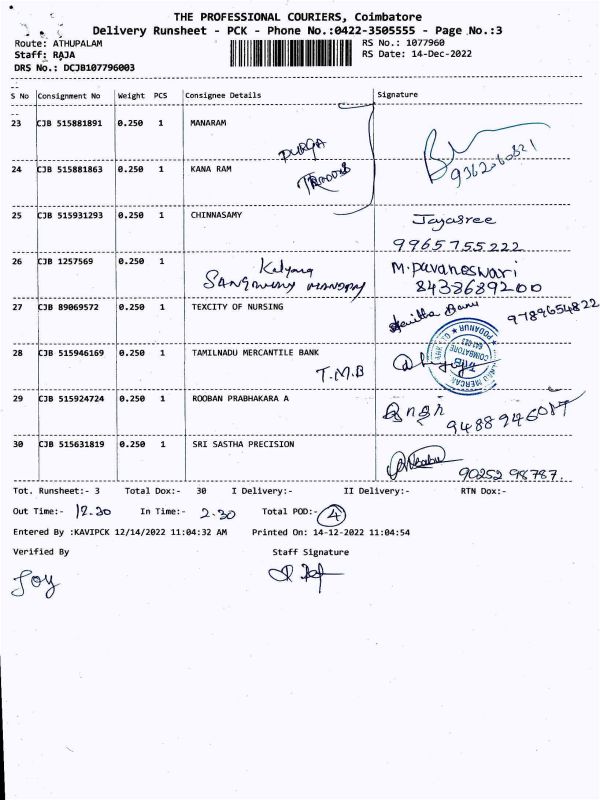 THE PROFESSIONAL COURIERS, Coimbatore
Delivery Runsheet - PCK - Phone No.:0422-3505555 - Page No.:3
Route: ATHUPALAM RS No.: 1077960
Staff: RAJA RS Date: 14-Dec-2022
DRS No.: DCJB107796003
S No Consignment No Weight PCS Consignee Details Signature
23 CJB 515881891 0.250 1 MANARAM
DURGA
24 CJB 515881863 0.250 1 KANA RAM
25 CJB 515931293 0.250 1 CHINNASAMY Jayasree
9965755222
26 CJB 1257569 0.250 1 M.Puvaneswari
8438689200
27 CJB 89069572 0.250 1 TEXCITY OF NURSING 9789654822
28 CJB 515946169 0.250 1 TAMILNADU MERCANTILE BANK
T.M.B
PODANUR
COIMBATORE
29 CJB 515924724 0.250 1 ROOBAN PRABHAKARA A
30 CJB 515631819 0.250 1 SRI SASTHA PRECISION
90252 98787
Tot. Runsheet:- 3 Total Dox:- 30 I Delivery:- II Delivery:- RTN Dox:-
Out Time:- 12.30 In Time:- 2.30 Total POD:- 4
Entered By :KAVIPCK 12/14/2022 11:04:32 AM Printed On: 14-12-2022 11:04:54
Verified By Staff Signature
Joy